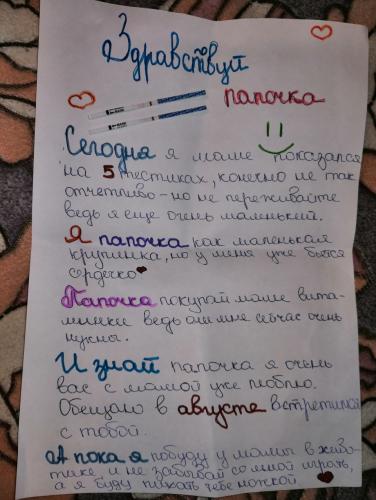 Здравствуй
папочка
Сегодня я маме показался
на 5 тестиках, конечно не так
отчетливо-но не переживайте
ведь я еще очень маленький.
Я папочка как маленькая
крупинка, но у меня уже бьется
сердечко
Папочка покупай маме вита-
минки ведь они мне сейчас очень
нужны.
И знай папочка я очень
вас с мамой уже люблю.
Обещаю в августе встретимся
с тобой.
А пока я побуду у мамы в живо-
тике и не забывай со мной играть,
а я буду пихать тебе ножкой